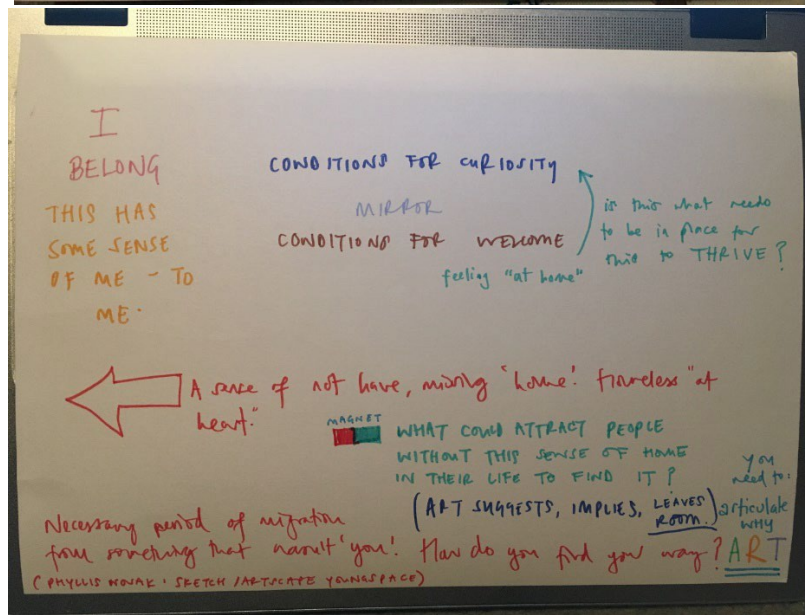 I
BELONG
THIS HAS
SOME SENSE
OF ME - TO
ME.
CONDITIONS FOR CURIOSITY
MIRROR
CONDITIONS FOR WELCOME
feeling "at home"
is this what needs
to be in place for
this to THRIVE?
A sense of not have, missing 'home'. "at
heart."
MAGNET
WHAT COULD ATTRACT PEOPLE
WITHOUT THIS SENSE OF HOME
IN THEIR LIFE TO FIND IT?
(ART SUGGESTS, IMPLIES, LEAVES
ROOM.)
you
need to:
articulate
WHY
ART
Necessary period of migration
from something that wasn't 'you'. How do you find your way?
(PHYLLIS NOVAK · SKETCH / ARTSCAPE YOUNGSPACE)